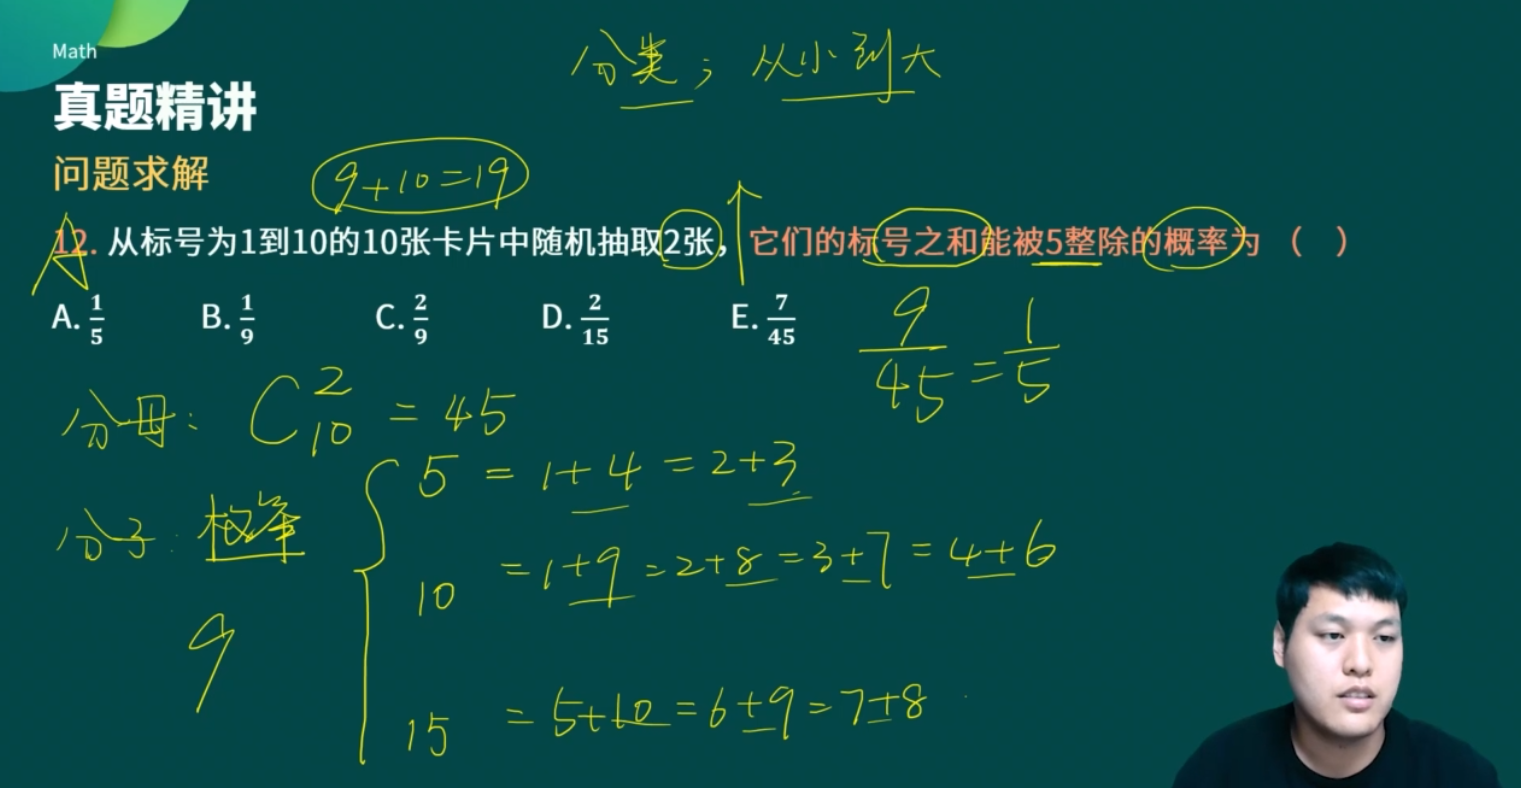 Math
分类；从小到大
真题精讲
问题求解
9+10=19
A
12. 从标号为1到10的10张卡片中随机抽取2张，它们的标号之和能被5整除的概率为（ ）
A. 1/5 B. 1/9 C. 2/9 D. 2/15 E. 7/45
9/45=1/5
分母: C₁₀² = 45
5 = 1+4 = 2+3
分子: 枚举
10 = 1+9 = 2+8 = 3+7 = 4+6
9
15 = 5+10 = 6+9 = 7+8